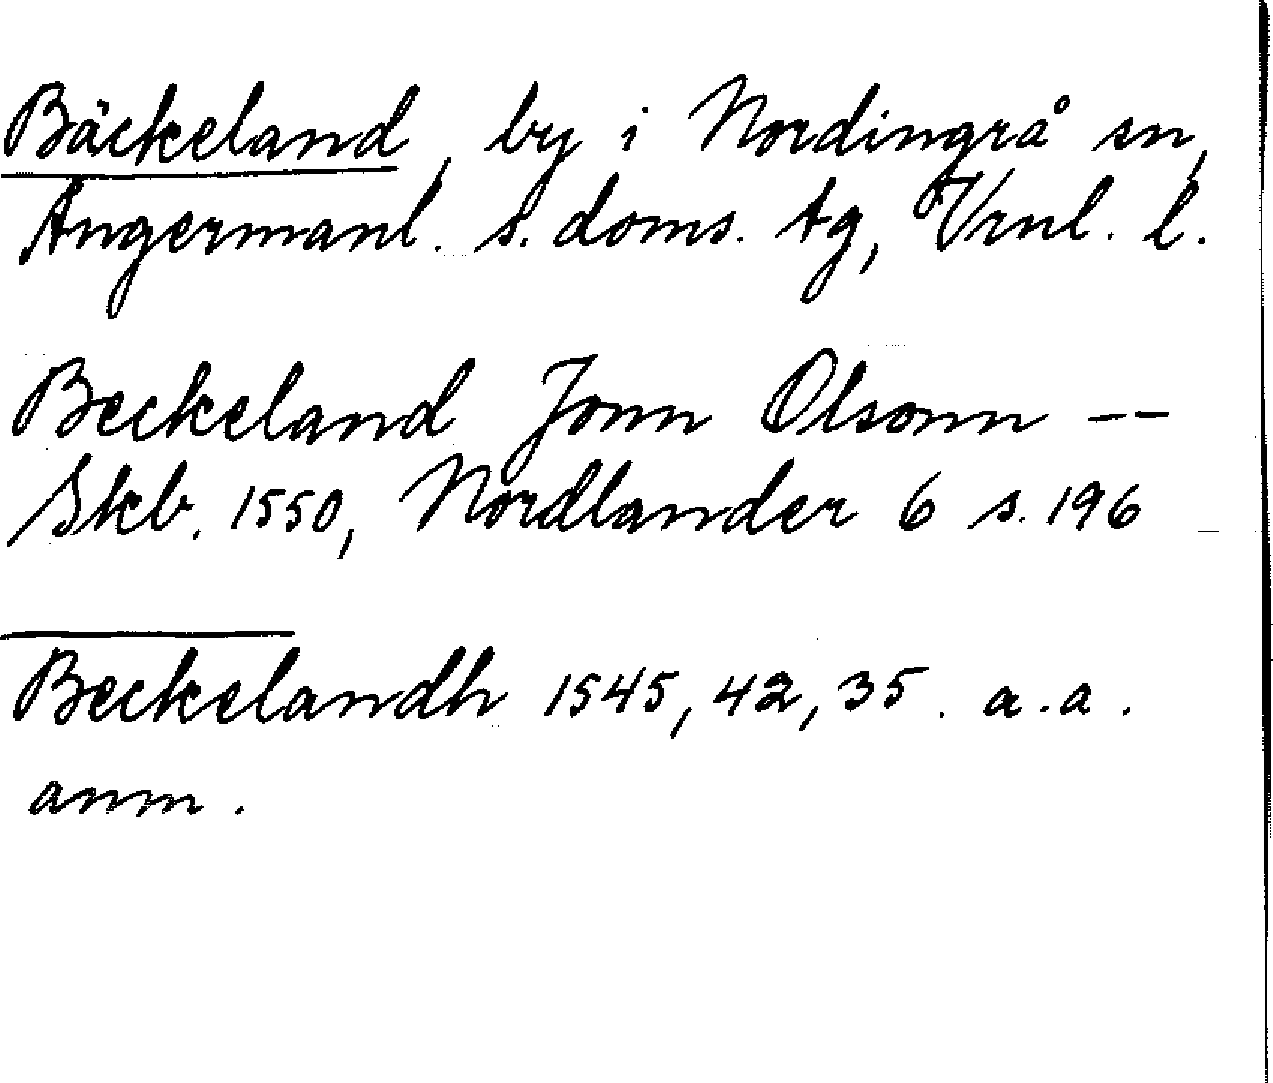 Bäckeland, by i Nordingrå sn,
Ångermanl. s. doms. tg, Vrnl. l.
Beckeland Jonn Olsonn --
Skb. 1550, Nordlander 6 s. 196
Beckelandh 1545, 42, 35. a.a.
anm.